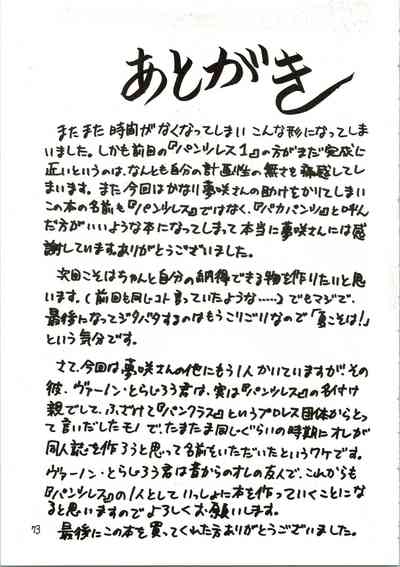 あとがき
またまた時間がなくなってしまいこんな形になってしま
いました。しかも前回の『パンツレス1』の方がまだ完成に
近いというのは、なんとも自分の計画性の無さを痛感してし
まいます。また今回はかなり夢咲さんの助けをかりてしまい
この本の名前も『パンツレス』ではなく、『バカパンツ』と呼ん
だ方がいいような本になってしまって本当に夢咲さんには感
謝していますありがとうございました。
次回こそはちゃんと自分の納得できる物を作りたいと思
います。(前回も同じコト言っていたような……)でもマジで、
最後になってジタバタするのはもうこりごりなので「夏こそは!」
という気分です。
さて、今回は夢咲さんの他にもう1人かいていますが、その
彼、ヴァーノン・とらじろう君は、実は『パンツレス』の名付け
親でして、ふざけて『パンクラス』というプロレス団体からとっ
て言いだしたモノで、たまたま同じぐらいの時期にオレが
同人誌を作ろうと思って名前をいただいたというワケです。
ヴァーノン・とらじろう君は昔からのオレの友人で、これからも
『パンツレス』の1人としていっしょに本を作っていくことにな
ると思いますのでよろしくお願いします。
最後にこの本を買ってくれた方ありがとうございました。
73